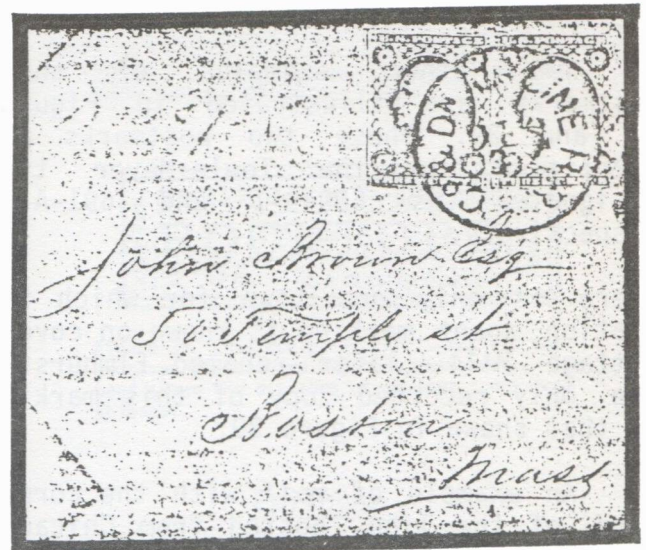 U.S. POSTAGE U.S. POSTAGE
LINE R
John Brown Esq
50 Temple st
Boston
Mass